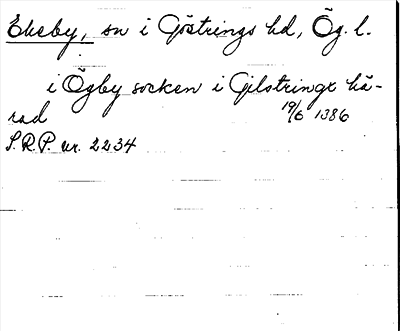 Ekeby, sn i Göstrings hd, Ög. l.
i Ögby socken i Gilstringx hä-
rad 19/6 1386
S.R.P. nr. 2234